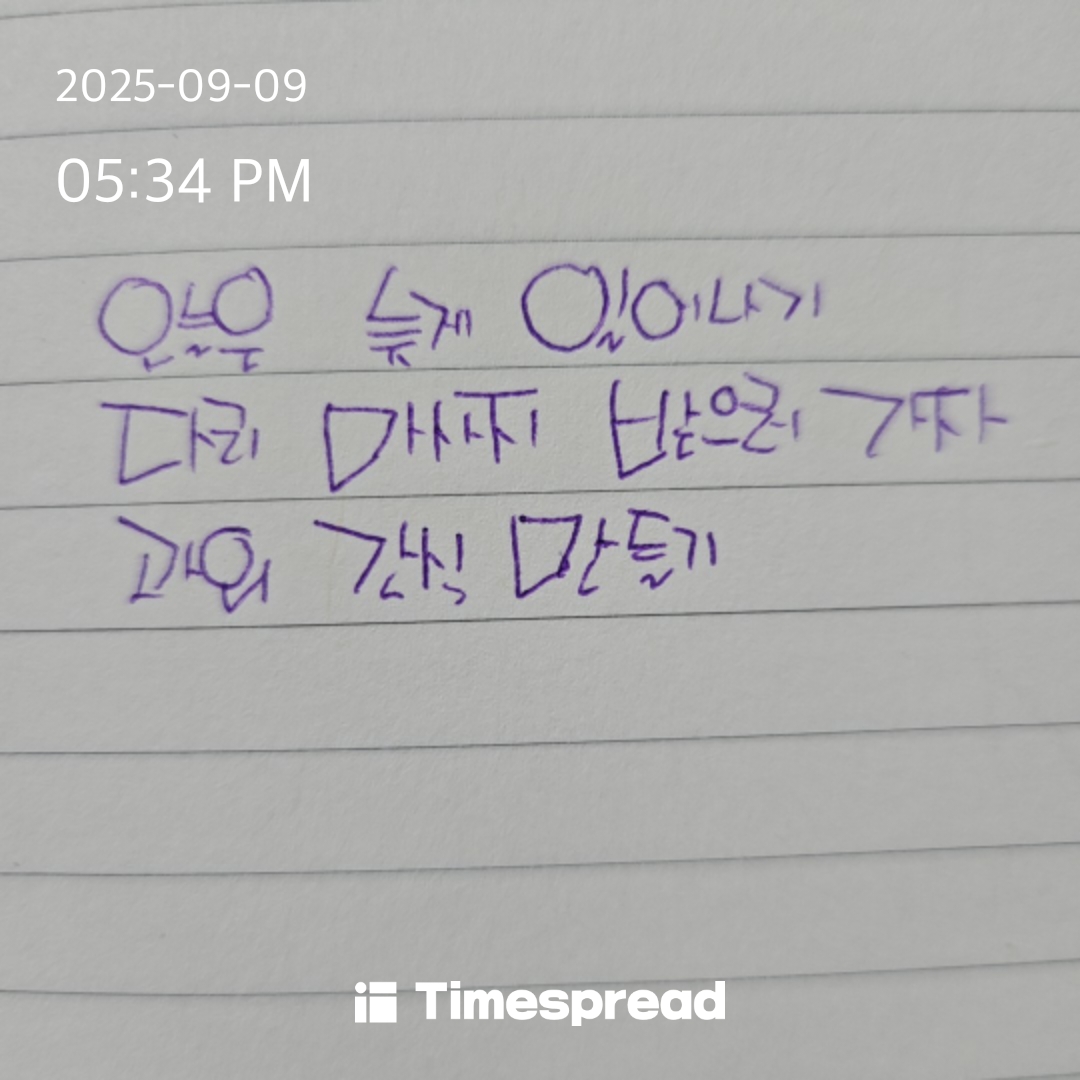 2025-09-09
05:34 PM
늦게 일어나기
다리 마사지 받으러 가자
과일 간식 만들기
Timespread